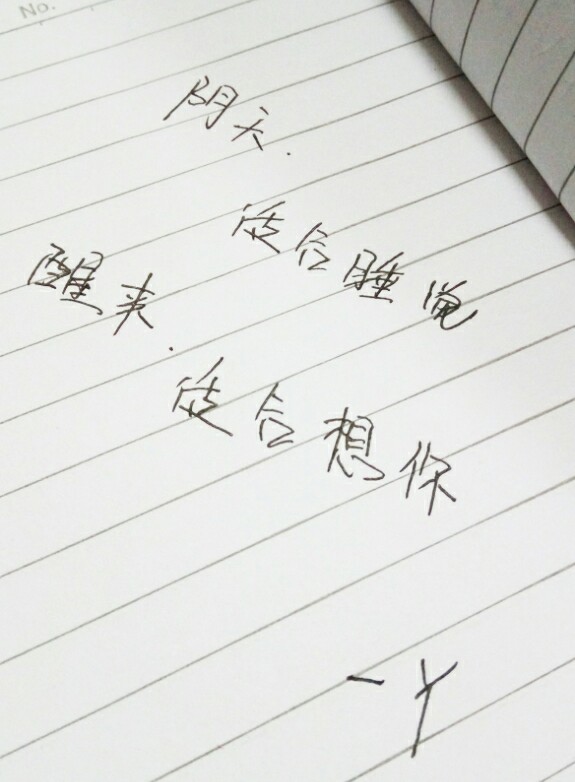 No.
阴天.
适合睡觉
醒来.
适合想你
一Y